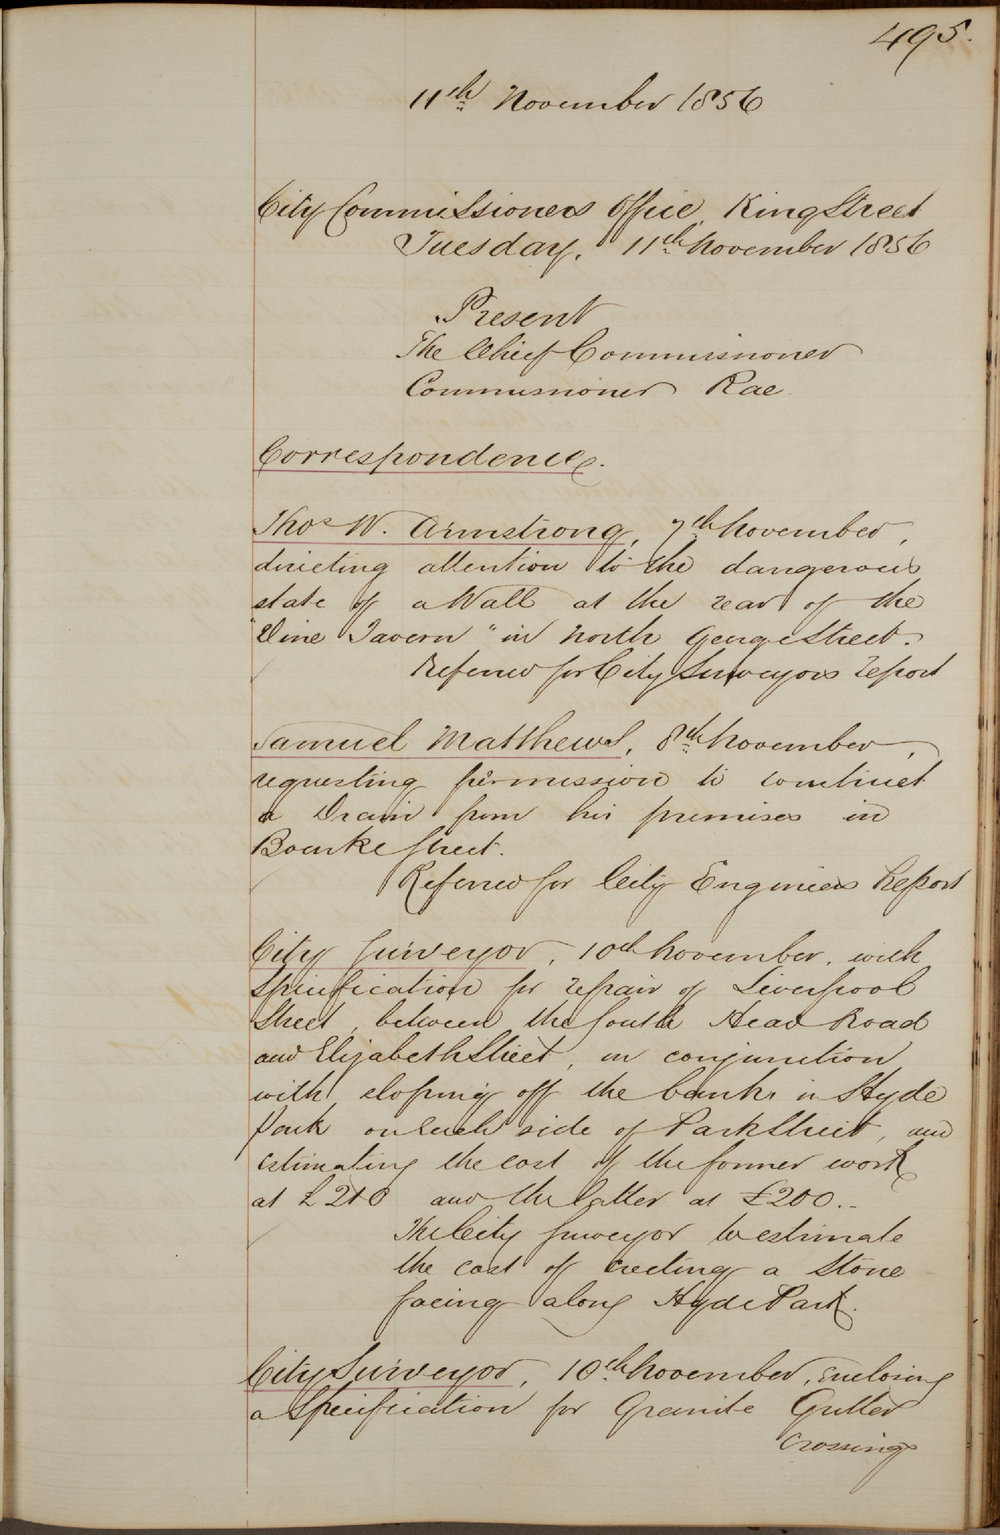 495.
11th November 1856
City Commissioners Office, King Street
Tuesday, 11th November 1856
Present
The Chief Commissioner
Commissioner Rae
Correspondence.
Thos W. Armstrong, 7th November,
directing attention to the dangerous
state of a Wall at the rear of the
"Vine Tavern" in North George Street.
Referred for City Surveyors report
Samuel Matthews, 8th November,
requesting permission to construct
a Drain from his premises in
Bourke Street.
Referred for City Engineers Report
City Surveyor, 10th November, with
Specification for repair of Liverpool
Street, between the South Head Road
and Elizabeth Street, in conjunction
with sloping off the banks in Hyde
Park on each side of Park Street, and
estimating the cost of the former work
at £210 and the latter at £200..
The City Surveyor to estimate
the cost of erecting a Stone
facing along Hyde Park.
City Surveyor, 10th November, enclosing
a Specification for Granite Gutter
crossings